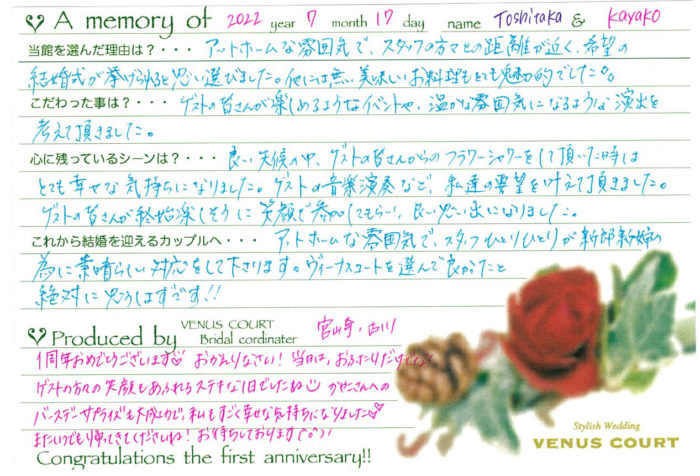 A memory of 2022 year 7 month 17 day name Toshitaka & kayako
当館を選んだ理由は？・・・ アットホームな雰囲気で、スタッフの方々との距離が近く、希望の
結婚式が挙げられると思い選びました。他には無い美味しいお料理もとても魅力的でした。
こだわった事は？・・・ ゲストの皆さんが楽しめるようなイベントや、温かな雰囲気になるような演出を
考えて頂きました。
心に残っているシーンは？・・・ 良い天候の中、ゲストの皆さんからのフラワーシャワーをして頂いた時は
とても幸せな気持ちになりました。ゲストの音楽演奏など、私達の要望を叶えて頂きました。
ゲストの皆さんが終始楽しそうに笑顔で参加してもらい、良い思い出になりました。
これから結婚を迎えるカップルへ・・・ アットホームな雰囲気で、スタッフひとりひとりが新郎新婦の
為に素晴らしい対応をして下さります。ヴィーナスコートを選んで良かったと
絶対に思うはずです!!
Produced by VENUS COURT Bridal cordinater 宮山幸・古川
1周年おめでとうございます♡ おかえりなさい! 当日は、おふたりだけでなく
ゲストの方々の笑顔もあふれるステキな1日でしたね かやこさんへの
バースデーサプライズも大成功で、私もすごく幸せな気持ちになりました♡
またいつでも帰ってきてくださいね! お待ちしております(^o^)/
Congratulations the first anniversary!!
Stylish Wedding
VENUS COURT